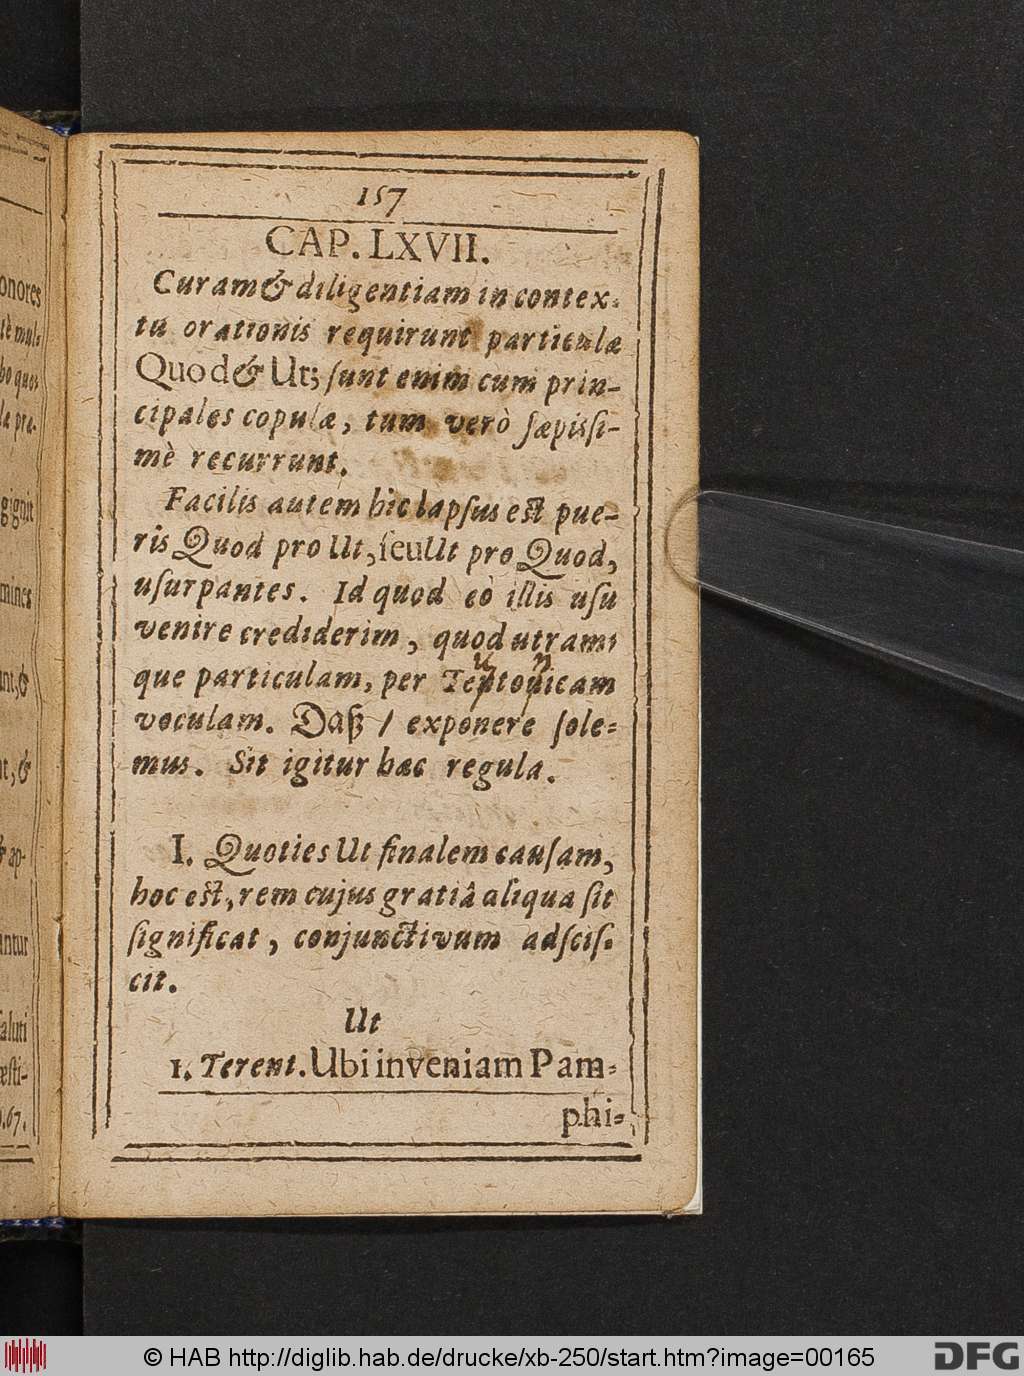 157
CAP. LXVII.
Curam & diligentiam in contex-
tu orationis requirunt particulæ
Quod & Ut; ſunt enim cum prin-
cipales copulæ, tum verò ſæpisſi-
mè recurrunt.
Facilis autem hic lapſus eſt pue-
ris Quod pro Ut, ſeu Ut pro Quod,
uſurpantes. Id quod eò illis uſu
venire crediderim, quod utram-
que particulam, per Teutonicam
voculam. Daß / exponere ſole-
mus. Sit igitur hæc regula.
I. Quoties Ut finalem cauſam,
hoc eſt, rem cujus gratiâ aliqua ſit
ſignificat, conjunctivum adſciſ-
cit.
Ut
1. Terent. Ubi inveniam Pam-
phi-
onores
tè mul-
bo quos
la præ-
gignit
mines
unt, &
nt, &
& ap-
untur
ſaluti
æſti-
.67.
© HAB http://diglib.hab.de/drucke/xb-250/start.htm?image=00165
DFG